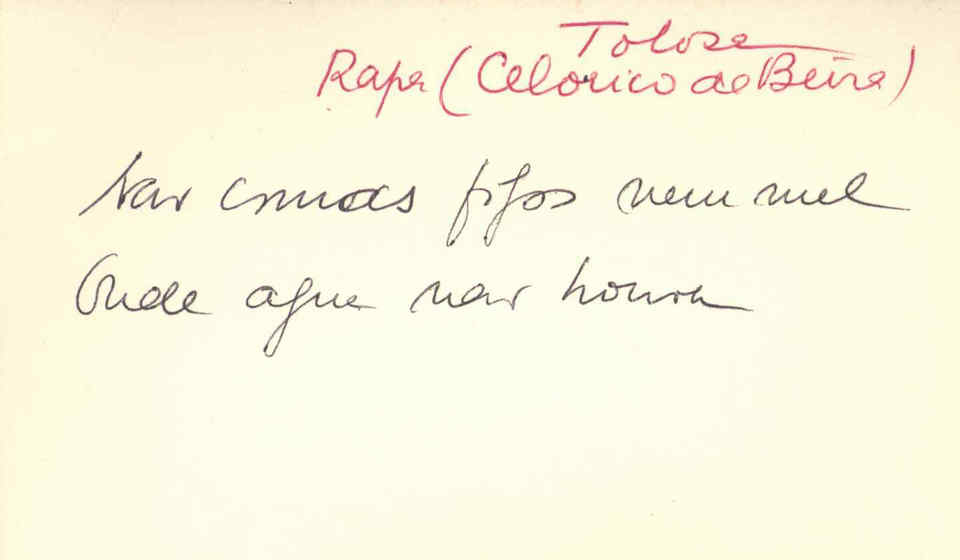 Tolosa
Rapa (Celorico da Beira)
Não comas figos nem mel
Onde agua não houver